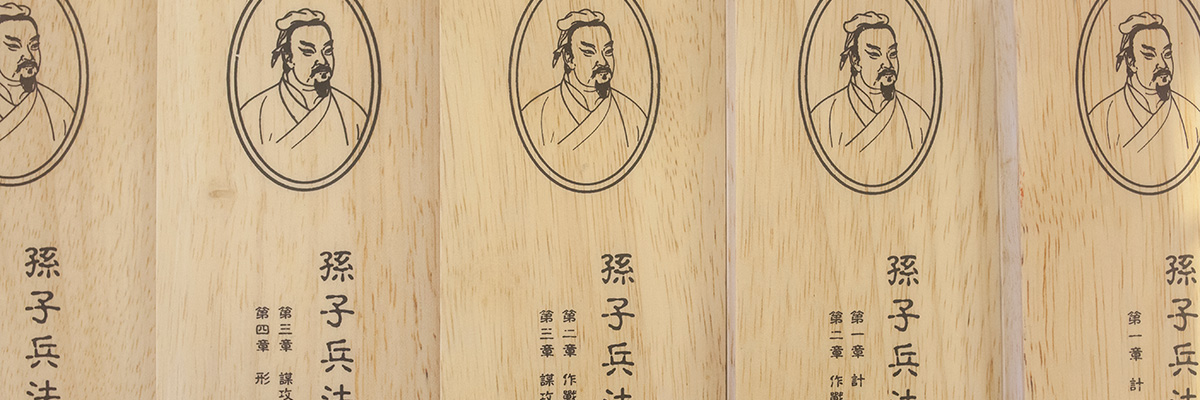 孫子兵法
第一章 計
孫子兵法
第一章 計
第二章 作戰
孫子兵法
第二章 作戰
第三章 謀攻
孫子兵法
第三章 謀攻
第四章 形
孫子兵法